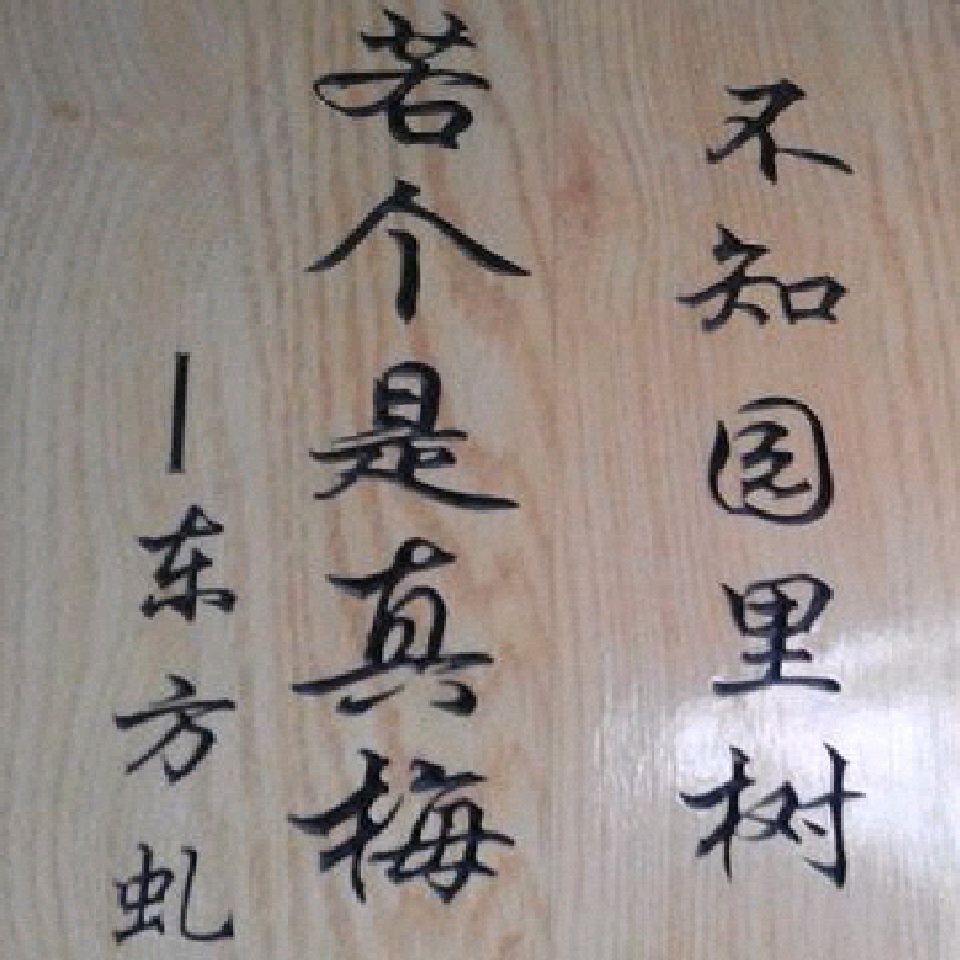 不知园里树
若个是真梅
—东方虬